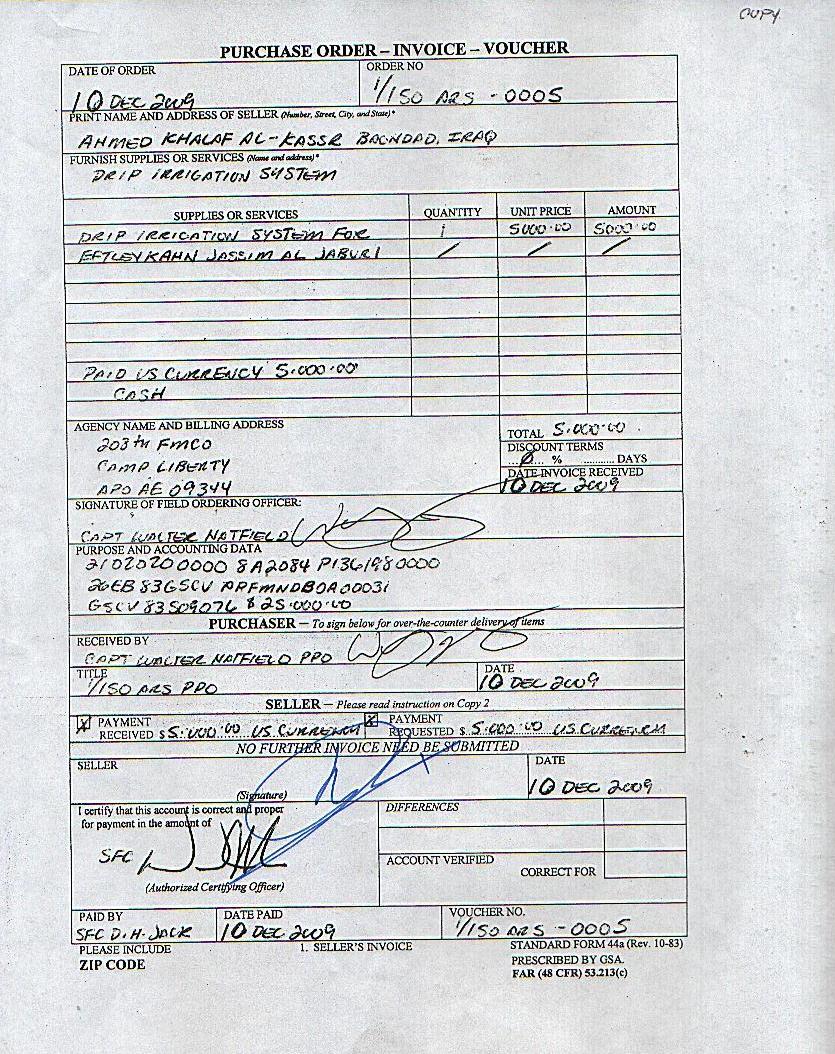 COPY
PURCHASE ORDER – INVOICE – VOUCHER
DATE OF ORDER
10 DEC 2009
ORDER NO
1/150 ARS - 0005
PRINT NAME AND ADDRESS OF SELLER (Number, Street, City, and State)*
AHMED KHALAF AL-KASSR BAGHDAD, IRAQ
FURNISH SUPPLIES OR SERVICES (Name and address)*
DRIP IRRIGATION SYSTEM
SUPPLIES OR SERVICES QUANTITY UNIT PRICE AMOUNT
DRIP IRRIGATION SYSTEM FOR 1 5000.00 5000.00
EFTLEYKAHN JASSIM AL JABURI / / /
PAID US CURRENCY 5.000.00
CASH
AGENCY NAME AND BILLING ADDRESS
203th FMCO
CAMP LIBERTY
APO AE 09344
TOTAL 5.000.00
DISCOUNT TERMS
0 % DAYS
DATE INVOICE RECEIVED
10 DEC 2009
SIGNATURE OF FIELD ORDERING OFFICER:
CAPT WALTER HATFIELD
PURPOSE AND ACCOUNTING DATA
21020200000 8A2084 P1361980000
26EB 83GSCV APFMNDB0A00031
GSCV83509076 $25.000.00
PURCHASER — To sign below for over-the-counter delivery of items
RECEIVED BY
CAPT WALTER HATFIELD PPO
TITLE
1/150 ARS PPO
DATE
10 DEC 2009
SELLER — Please read instruction on Copy 2
X PAYMENT
RECEIVED $ 5.000.00 US CURRENCY
X PAYMENT
REQUESTED $ 5.000.00 US CURRENCY
NO FURTHER INVOICE NEED BE SUBMITTED
SELLER
(Signature)
DATE
10 DEC 2009
I certify that this account is correct and proper
for payment in the amount of
SFC
(Authorized Certifying Officer)
DIFFERENCES
ACCOUNT VERIFIED
CORRECT FOR
PAID BY
SFC D. H. JACK
DATE PAID
10 DEC 2009
VOUCHER NO.
1/150 ARS - 0005
PLEASE INCLUDE
ZIP CODE
1. SELLER'S INVOICE
STANDARD FORM 44a (Rev. 10-83)
PRESCRIBED BY GSA.
FAR (48 CFR) 53.213(c)